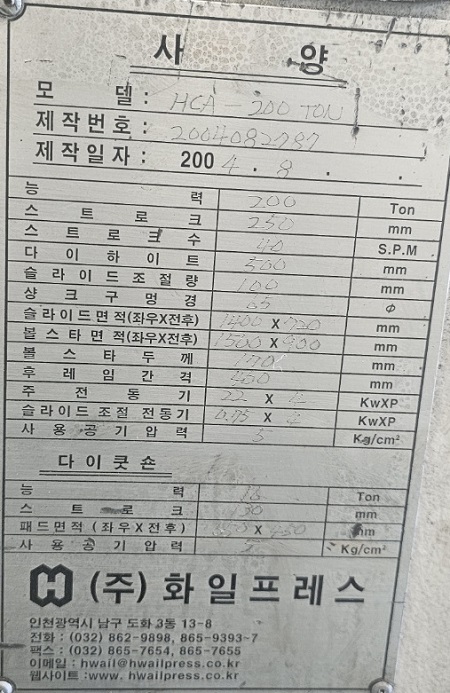 사 양
모 델 : HCA - 200 TON
제작번호 : 2004082787
제작일자 : 2004 . 8 .
능 력 200 Ton
스 트 로 크 250 mm
스 트 로 크 수 40 S.P.M
다 이 하 이 트 500 mm
슬 라 이 드 조 절 량 100 mm
샹 크 구 멍 경 65 φ
슬라이드면적(좌우X전후) 1400 X 720 mm
볼스타면적(좌우X전후) 1500 X 900 mm
볼 스 타 두 께 mm
후 레 임 간 격 mm
주 전 동 기 22 X 4 KwXP
슬라이드 조절 전동기 0.75 X 4 KwXP
사 용 공 기 압 력 5 Kg/cm²
다이쿳숀
능 력 Ton
스 트 로 크 mm
패드면적 (좌우X전후) X mm
사 용 공 기 압 력 5 Kg/cm²
(주) 화일프레스
인천광역시 남구 도화 3동 13-8
전화 : (032) 862-9898, 865-9393~7
팩스 : (032) 865-7654, 865-7655
이메일 : hwail@hwailpress.co.kr
웹사이트 :www. hwailpress.co.kr